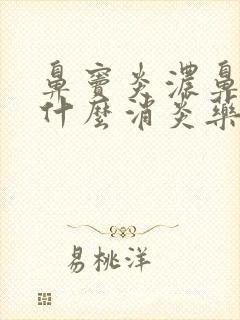 鼻窦炎浓鼻
什麼消炎藥
易桃洋